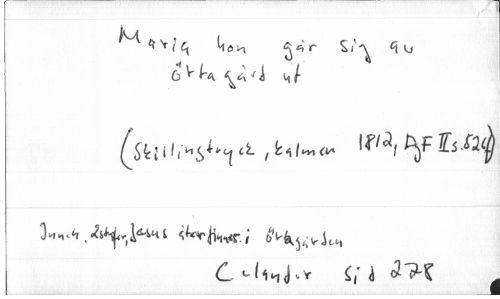 Maria hon går sig av
örtagård ut
(Skillingtryck, Kalmar 1812, AgF II s. 526f)
Inneh. 2 strofer, Jesus återfinnes i örtagården
Celander sid 278